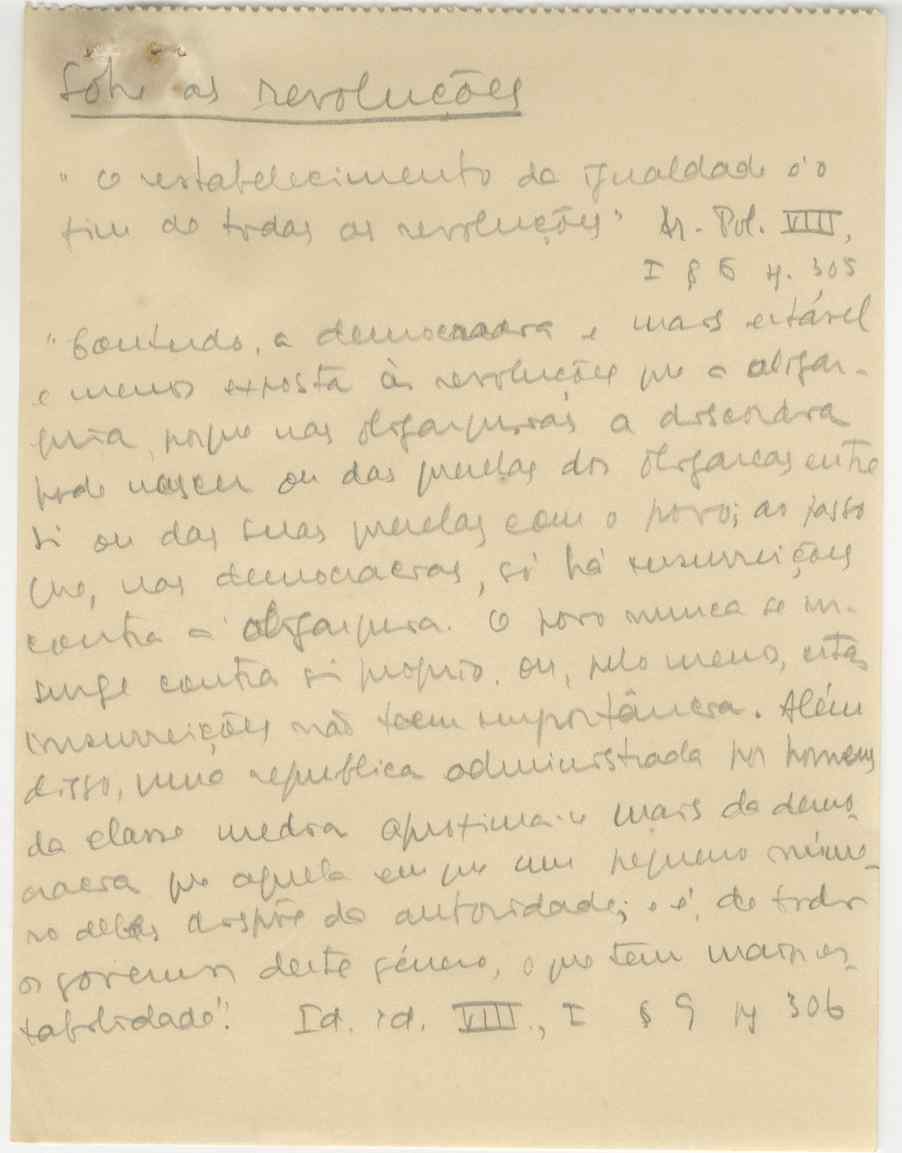 Sôbre as revoluções
"O estabelecimento da igualdade é o
fim de todas as revoluções" Ar. Pol. VIII,
I § 6 p. 305
"Contudo, a democracia é mais estável
e menos exposta às revoluções que a oligar-
quia, porque nas oligarquias a discórdia
pode nascer ou das querelas dos oligarcas entre
si ou das suas querelas com o povo; ao passo
que, nas democracias, só há insurreições
contra a oligarquia. O povo nunca se in-
surge contra si próprio. ou, pelo menos, estas
insurreições não teem importância. Além
disso, uma republica administrada por homens
da classe media aproxima-se mais da demo-
cracia que aquela em que um pequeno núme-
ro deles dispõe da autoridade; e é, de todos
os governos deste género, o que tem mais es-
tabilidade". Id. id. VIII., I § 9 p 306